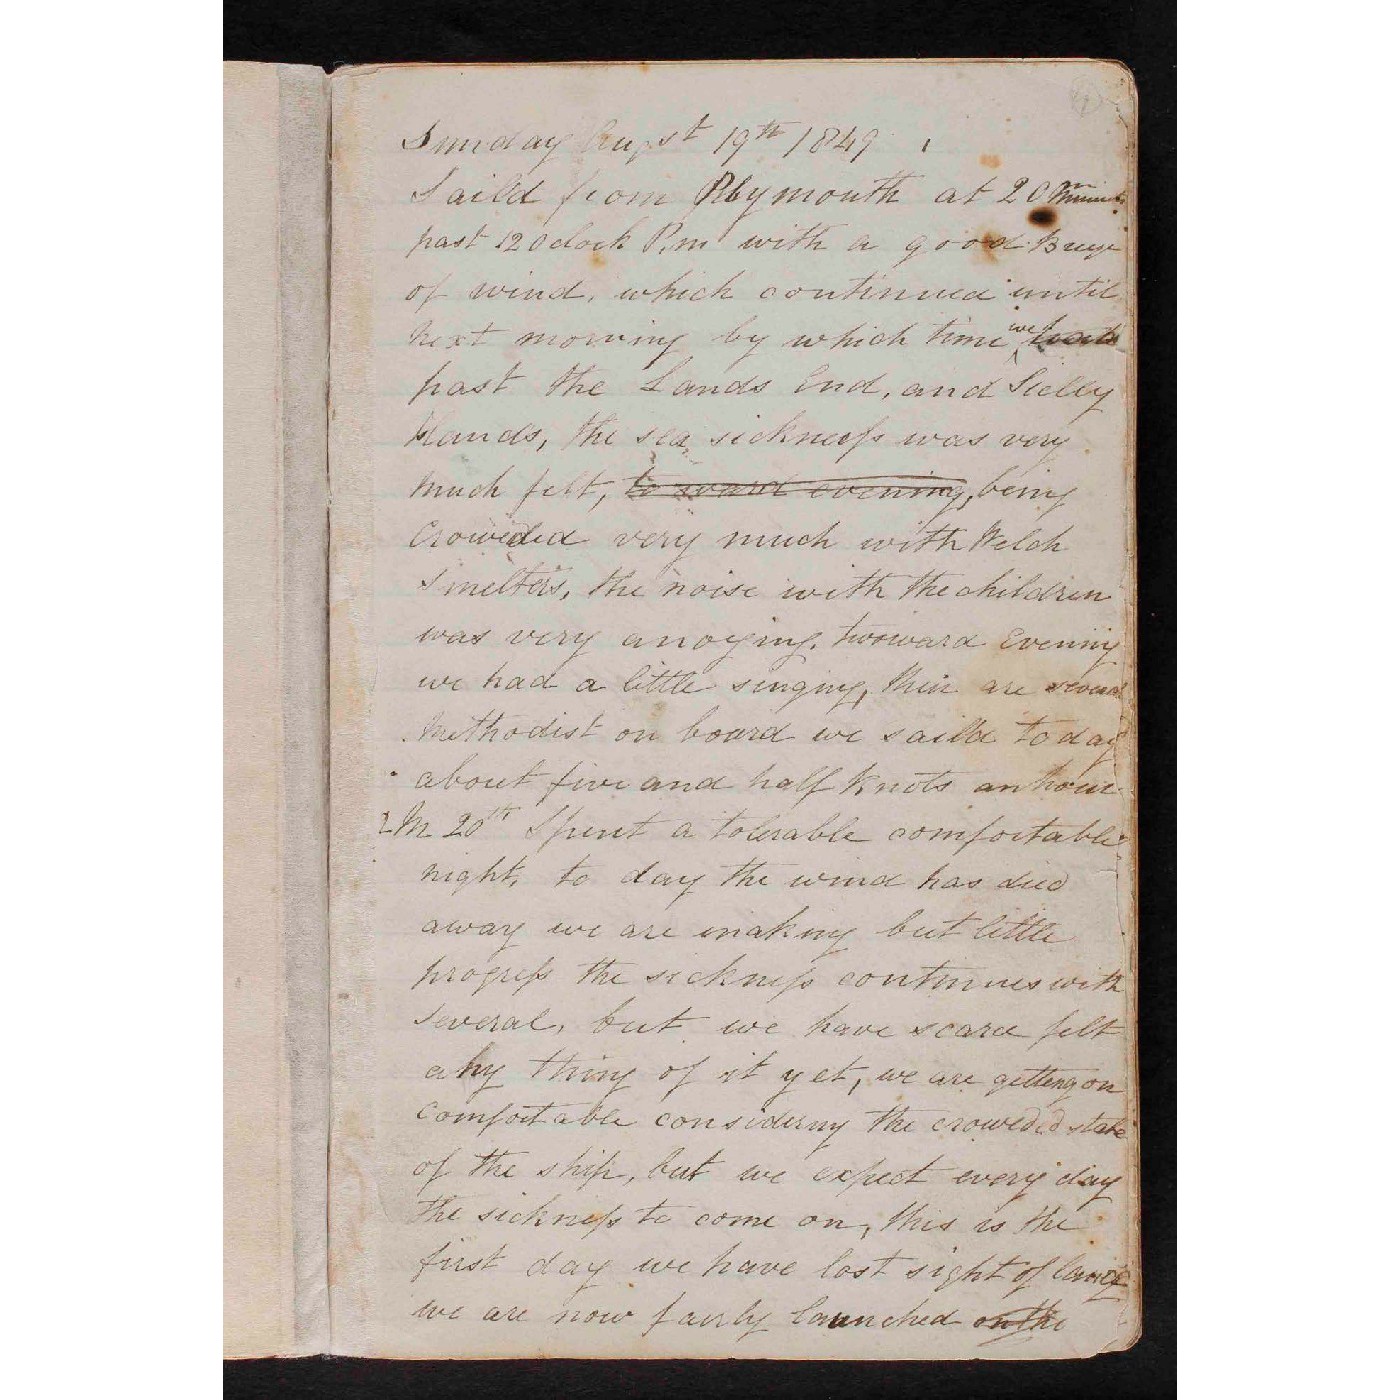 Sunday Augst 19th 1849
Saild from Plymouth at 20 minuts
past 12 Oclock P.m with a good Breeze
of wind, which continued until
next morning by which time we
past the Lands End, and Scilly
Islands, the sea sickness was very
much felt, to ward evening, being
Croweded very much with Welch
Smelters, the noise with the children
was very anoying, tworward Evening
we had a little singing, their are several
Methodist on board we saild to day
about five and half knots an hour
M 20th Spent a tolerable comfortable
night, to day the wind has died
away we are making but little
progress the sickness continues with
several, but we have scarce felt
any thing of it yet, we are getting on
comfortable considering the croweded state
of the ship, but we expect every day
the sickness to come on, this is the
first day we have lost sight of land
we are now fairly launched on the